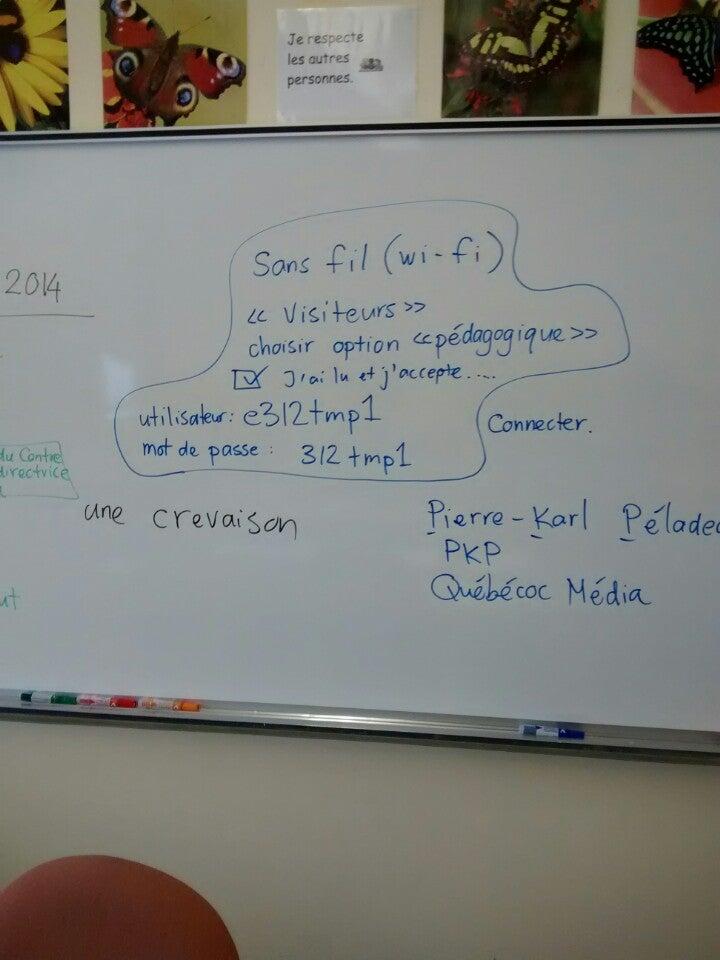 Je respecte
les autres
personnes.
2014
Sans fil (wi-fi)
<< Visiteurs >>
choisir option <<pédagogique>>
J'ai lu et j'accepte.....
utilisateur: e312tmp1
mot de passe : 312tmp1
Connecter.
du Contre
directrice
une crevaison
Pierre-Karl Péladea
PKP
Québécoc Média
ut